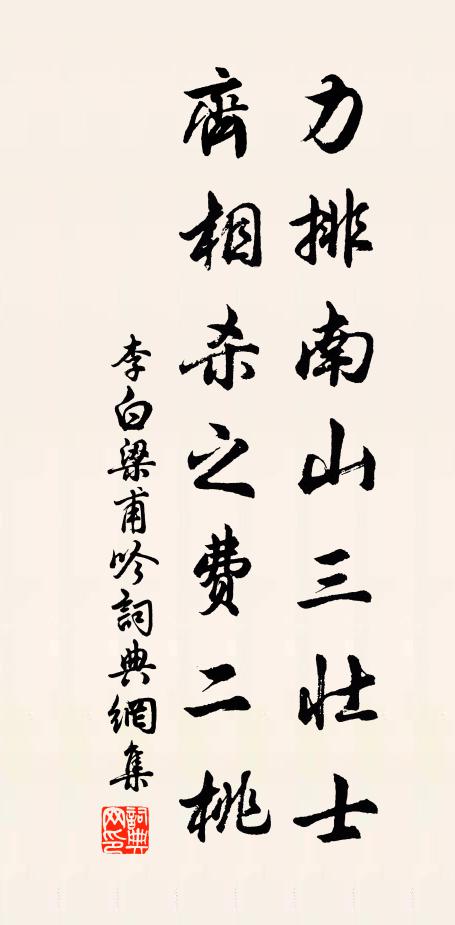 力排南山三壮士
齊相杀之费二桃
李白梁甫吟詞典網集
詞典网印